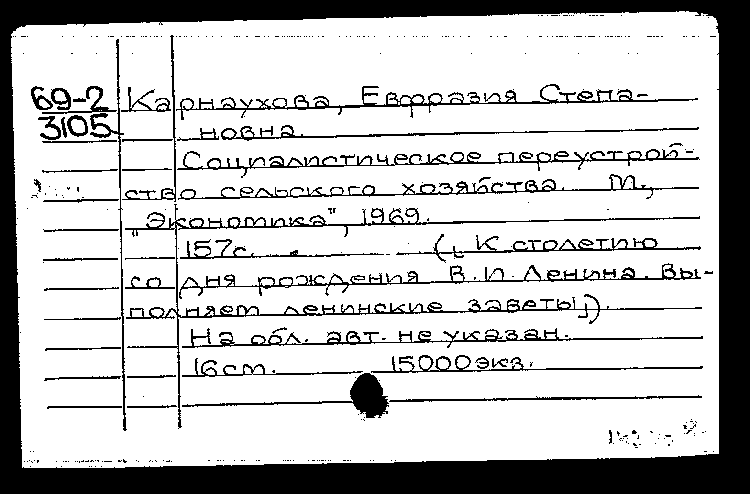 69-2 Карнаухова, Евфразия Степа-
3105 новна.
Социалистическое переустрой-
ство сельского хозяйства. М.,
"Экономика", 1969.
157с. ("К столетию
со дня рождения В.И.Ленина. Вы-
полняет ленинские заветы").
На обл. авт. не указан.
16см. 15000экз.